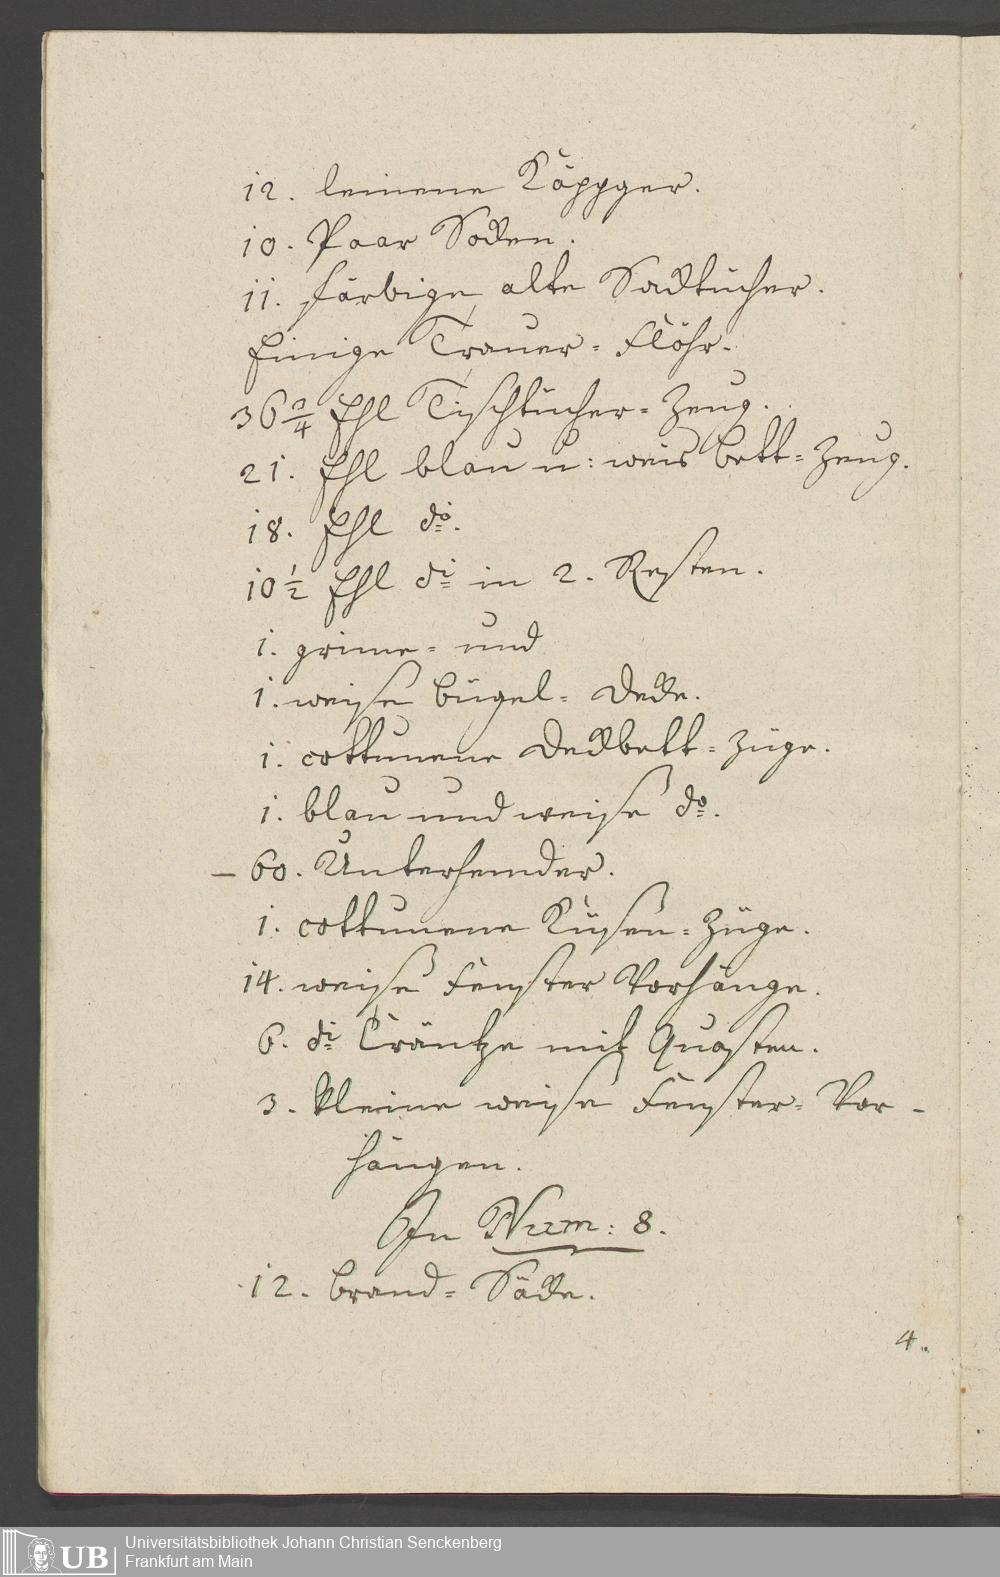 12. leinene Käppger.
10. Paar Socken.
11. färbige alte Sacktücher.
Einige Trauer-Flöhr.
36 3/4 Ehl Tischtücher-Zeug.
21. Ehl blau u: weis Bett-Zeug.
18. Ehl do.
10 1/2 Ehl di in 2. Resten.
1. grüne- und
1. weise Bügel-Decke.
1. cottunene Deckbett-Züge.
1. blau und weise do.
– 60. Unterhemder.
1. cottunene Küsen-Züge.
14. weise Fenster Vorhänge.
6. di Cräntze mit Quasten.
3. kleine weise Fenster-Vor-
hängen.
In Num: 8.
12. Brand-Säcke.
4.
Universitätsbibliothek Johann Christian Senckenberg
UB Frankfurt am Main